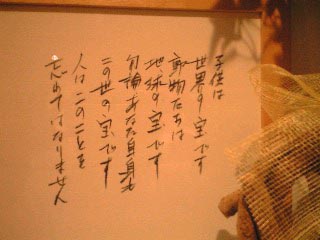 子供は
世界の宝です
動物たちは
地球の宝です
勿論あなた自身も
この世の宝です
人はこのことを
忘れてはなりません